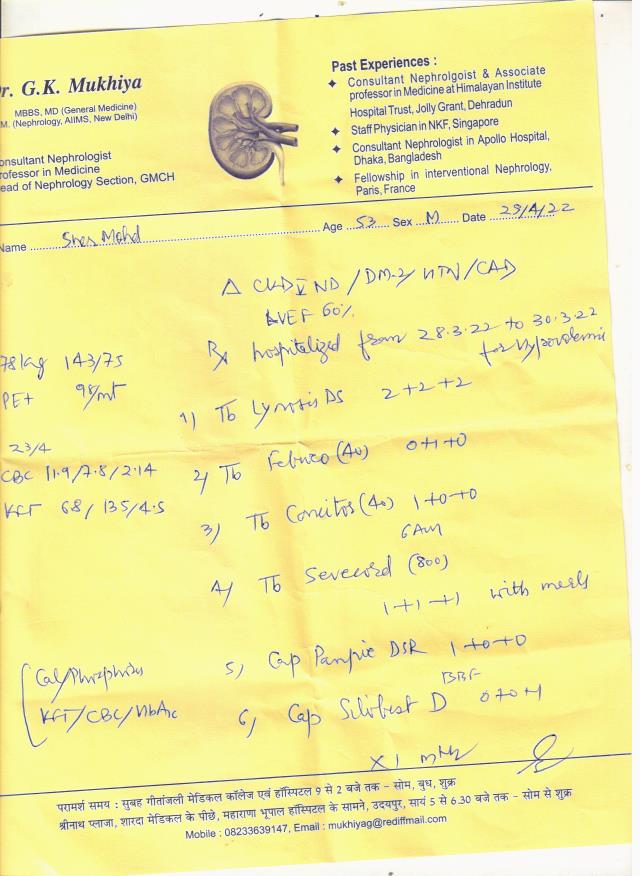 r. G.K. Mukhiya
MBBS, MD (General Medicine)
M. (Nephrology, AIIMS, New Delhi)
onsultant Nephrologist
rofessor in Medicine
ead of Nephrology Section, GMCH
Past Experiences :
Consultant Nephrolgoist & Associate
professor in Medicine at Himalayan Institute
Hospital Trust, Jolly Grant, Dehradun
Staff Physician in NKF, Singapore
Consultant Nephrologist in Apollo Hospital,
Dhaka, Bangladesh
Fellowship in interventional Nephrology,
Paris, France
Name Sher Mohd Age 53 Sex M Date 29/4/22
Δ CKD V ND / DM-2 / HTN / CAD
LVEF 60%
Rx hospitalized from 28.3.22 to 30.3.22
for
78 kg 143/75
PE+ 98/mt
23/4
CBC 11.9/7.8/2.14
KFT 68/135/4.5
1) Tb DS 2+2+2
2) Tb (40) 0+1+0
3) Tb (40) 1+0+0
6 Am
4) Tb (800)
1+1+1 with meals
5) Cap DSR 1+0+0
BBF
6) Cap D 0+0+1
x 1 mth
Cal/Phosphorus
KFT/CBC/HbA1c
परामर्श समय : सुबह गीतांजली मेडिकल कॉलेज एवं हॉस्पिटल 9 से 2 बजे तक - सोम, बुध, शुक्र
श्रीनाथ प्लाजा, शारदा मेडिकल के पीछे, महाराणा भूपाल हॉस्पिटल के सामने, उदयपुर, सायं 5 से 6.30 बजे तक - सोम से शुक्र
Mobile : 08233639147, Email : mukhiyag@rediffmail.com